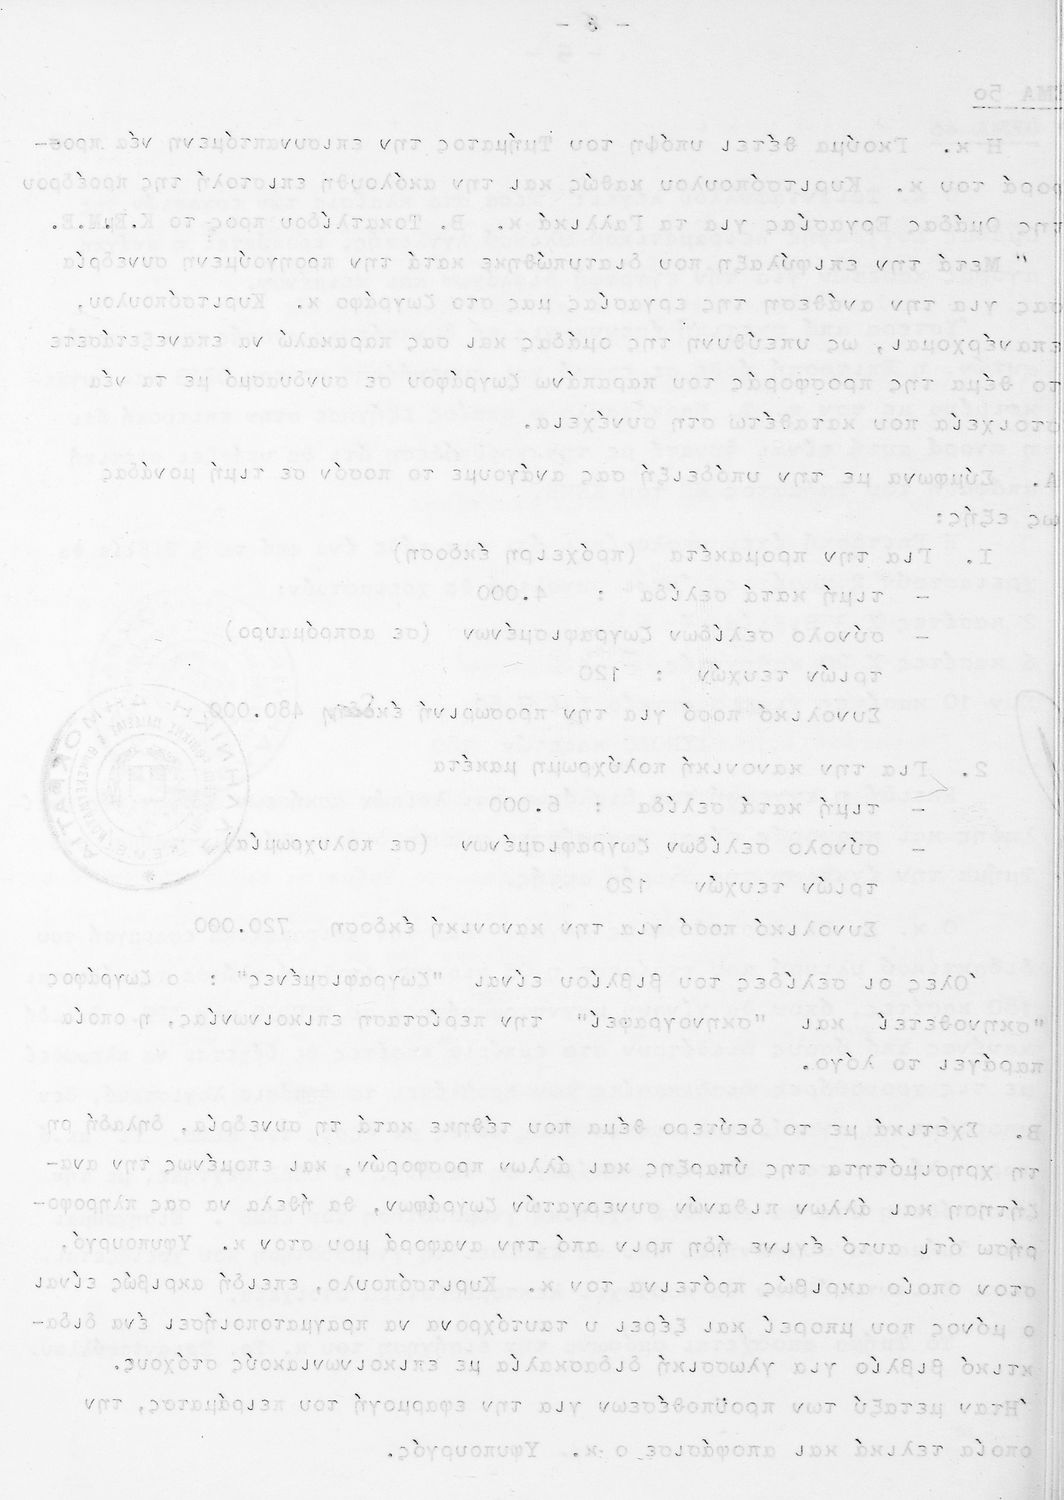 - 8 -
ΘΕΜΑ 5ο
Η κ. Γκούμα θέτει υπόψη του Τμήματος την επισυναπτόμενη νέα προσ-
φορά του κ. Κυριτσόπουλου καθώς και την ακόλουθη επιστολή της προέδρου
της Ομάδας Εργασίας για τα Γαλλικά κ. Β. Τοκατλίδου προς το Κ.Ε.Μ.Ε.
" Μετά την επιφύλαξη που διατυπώθηκε κατά την προηγούμενη συνεδρία
σας για την ανάθεση της εργασίας μας στο ζωγράφο κ. Κυριτσόπουλου,
επανέρχομαι, ως υπεύθυνη της ομάδας και σας παρακαλώ να επανεξετάσετε
το θέμα της προσφοράς του παραπάνω ζωγράφου σε συνδυασμό με τα νέα
στοιχεία που καταθέτω στη συνέχεια.
Α. Σύμφωνα με την υπόδειξή σας ανάγουμε το ποσόν σε τιμή μονάδας
ως εξής:
1. Για την προμακέτα (πρόχειρη έκδοση)
- τιμή κατά σελίδα : 4.000
- σύνολο σελίδων ζωγραφισμένων (σε ασπρόμαυρο)
τριών τευχών : 120
Συνολικό ποσό για την προσωρινή έκδοση 480.000
2. Για την κανονική πολύχρωμη μακέτα
- τιμή κατά σελίδα : 6.000
- σύνολο σελίδων ζωγραφισμένων (σε πολυχρωμία)
τριών τευχών 120
Συνολικό ποσό για την κανονική έκδοση 720.000
Όλες οι σελίδες του βιβλίου είναι "ζωγραφισμένες" : ο ζωγράφος
"σκηνοθετεί και "σκηνογραφεί" την περίσταση επικοινωνίας, η οποία
παράγει το λόγο.
Β. Σχετικά με το δεύτερο θέμα που τέθηκε κατά τη συνεδρία, δηλαδή
τη χρησιμότητα της ύπαρξης και άλλων προσφορών, και επομένως την ανα-
ζήτηση και άλλων πιθανών συνεργατών ζωγράφων, θα ήθελα να σας πληροφο-
ρήσω ότι αυτό έγινε ήδη πριν από την αναφορά μου στον κ. Υφυπουργό,
στον οποίο ακριβώς πρότεινα τον κ. Κυριτσόπουλο, επειδή ακριβώς είναι
ο μόνος που μπορεί και ξέρει υ ταυτόχρονα να πραγματοποιήσει ένα διδα-
κτικό βιβλίο για γλωσσική διδασκαλία με επικοινωνιακούς στόχους.
Ήταν μεταξύ των προϋποθέσεων για την εφαρμογή του πειράματος, την
οποία τελικά και αποφάσισε ο κ. Υφυπουργός.